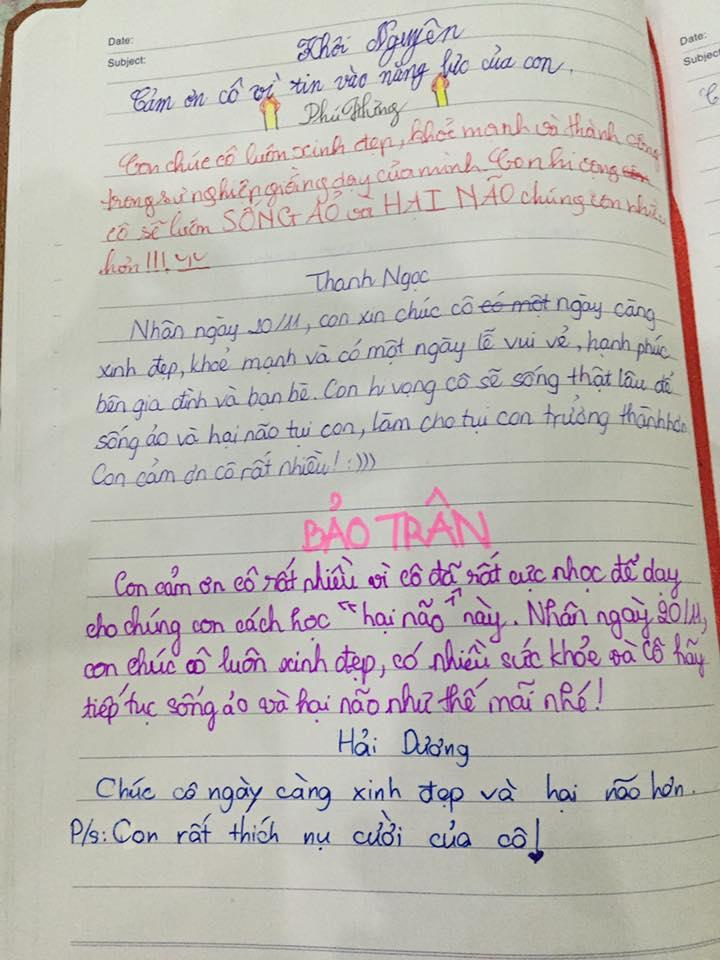 Date:
Subject:
Khôi Nguyên
Cảm ơn cô vì tin vào năng lực của con.
Phú Hưng
Con chúc cô luôn xinh đẹp, khoẻ mạnh và thành công
trong sự nghiệp giảng dạy của mình. Con hi vọng
cô sẽ luôn SỐNG ẢO và HẠI NÃO chúng con nhiều
hơn!!!
Thanh Ngọc
Nhân ngày 20/11, con xin chúc cô có một ngày càng
xinh đẹp, khoẻ mạnh và có một ngày lễ vui vẻ, hạnh phúc
bên gia đình và bạn bè. Con hi vọng cô sẽ sống thật lâu để
sống ảo và hại não tụi con, làm cho tụi con trưởng thành hơn
Con cảm ơn cô rất nhiều! :)))
BẢO TRÂN
Con cảm ơn cô rất nhiều vì cô đã rất cực nhọc để dạy
cho chúng con cách học "hại não" này. Nhân ngày 20/11,
con chúc cô luôn xinh đẹp, có nhiều sức khỏe và cô hãy
tiếp tục sống ảo và hại não như thế mãi nhé!
Hải Dương
Chúc cô ngày càng xinh đẹp và hại não hơn.
P/s: Con rất thích nụ cười của cô!
Date:
Subject: